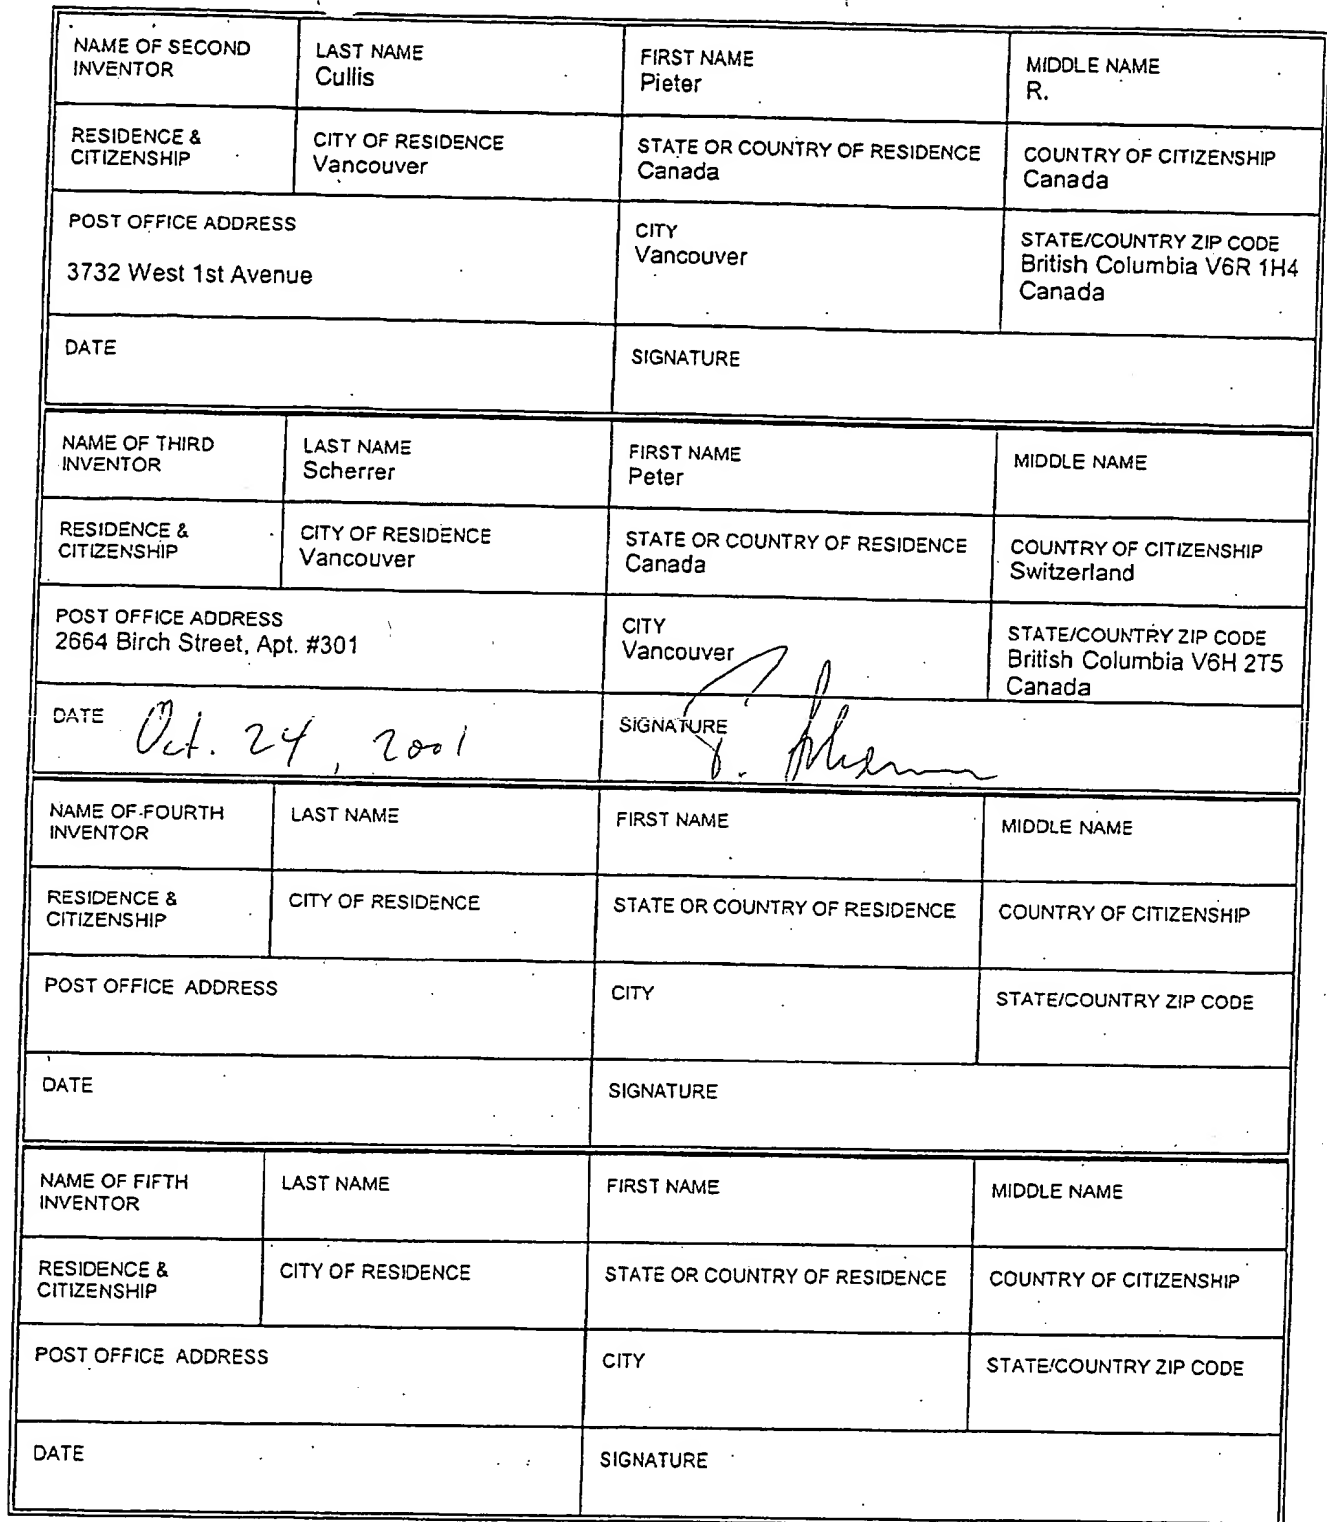 NAME OF SECOND INVENTOR
LAST NAME
Cullis
FIRST NAME
Pieter
MIDDLE NAME
R.
RESIDENCE &
CITIZENSHIP
CITY OF RESIDENCE
Vancouver
STATE OR COUNTRY OF RESIDENCE
Canada
COUNTRY OF CITIZENSHIP
Canada
POST OFFICE ADDRESS
3732 West 1st Avenue
CITY
Vancouver
STATE/COUNTRY ZIP CODE
British Columbia V6R 1H4
Canada
DATE
SIGNATURE
NAME OF THIRD
INVENTOR
LAST NAME
Scherrer
FIRST NAME
Peter
MIDDLE NAME
RESIDENCE &
CITIZENSHIP
CITY OF RESIDENCE
Vancouver
STATE OR COUNTRY OF RESIDENCE
Canada
COUNTRY OF CITIZENSHIP
Switzerland
POST OFFICE ADDRESS
2664 Birch Street, Apt. #301
CITY
Vancouver
STATE/COUNTRY ZIP CODE
British Columbia V6H 2T5
Canada
DATE Oct. 24, 2001
SIGNATURE
NAME OF FOURTH
INVENTOR
LAST NAME
FIRST NAME
MIDDLE NAME
RESIDENCE &
CITIZENSHIP
CITY OF RESIDENCE
STATE OR COUNTRY OF RESIDENCE
COUNTRY OF CITIZENSHIP
POST OFFICE ADDRESS
CITY
STATE/COUNTRY ZIP CODE
DATE
SIGNATURE
NAME OF FIFTH
INVENTOR
LAST NAME
FIRST NAME
MIDDLE NAME
RESIDENCE &
CITIZENSHIP
CITY OF RESIDENCE
STATE OR COUNTRY OF RESIDENCE
COUNTRY OF CITIZENSHIP
POST OFFICE ADDRESS
CITY
STATE/COUNTRY ZIP CODE
DATE
SIGNATURE